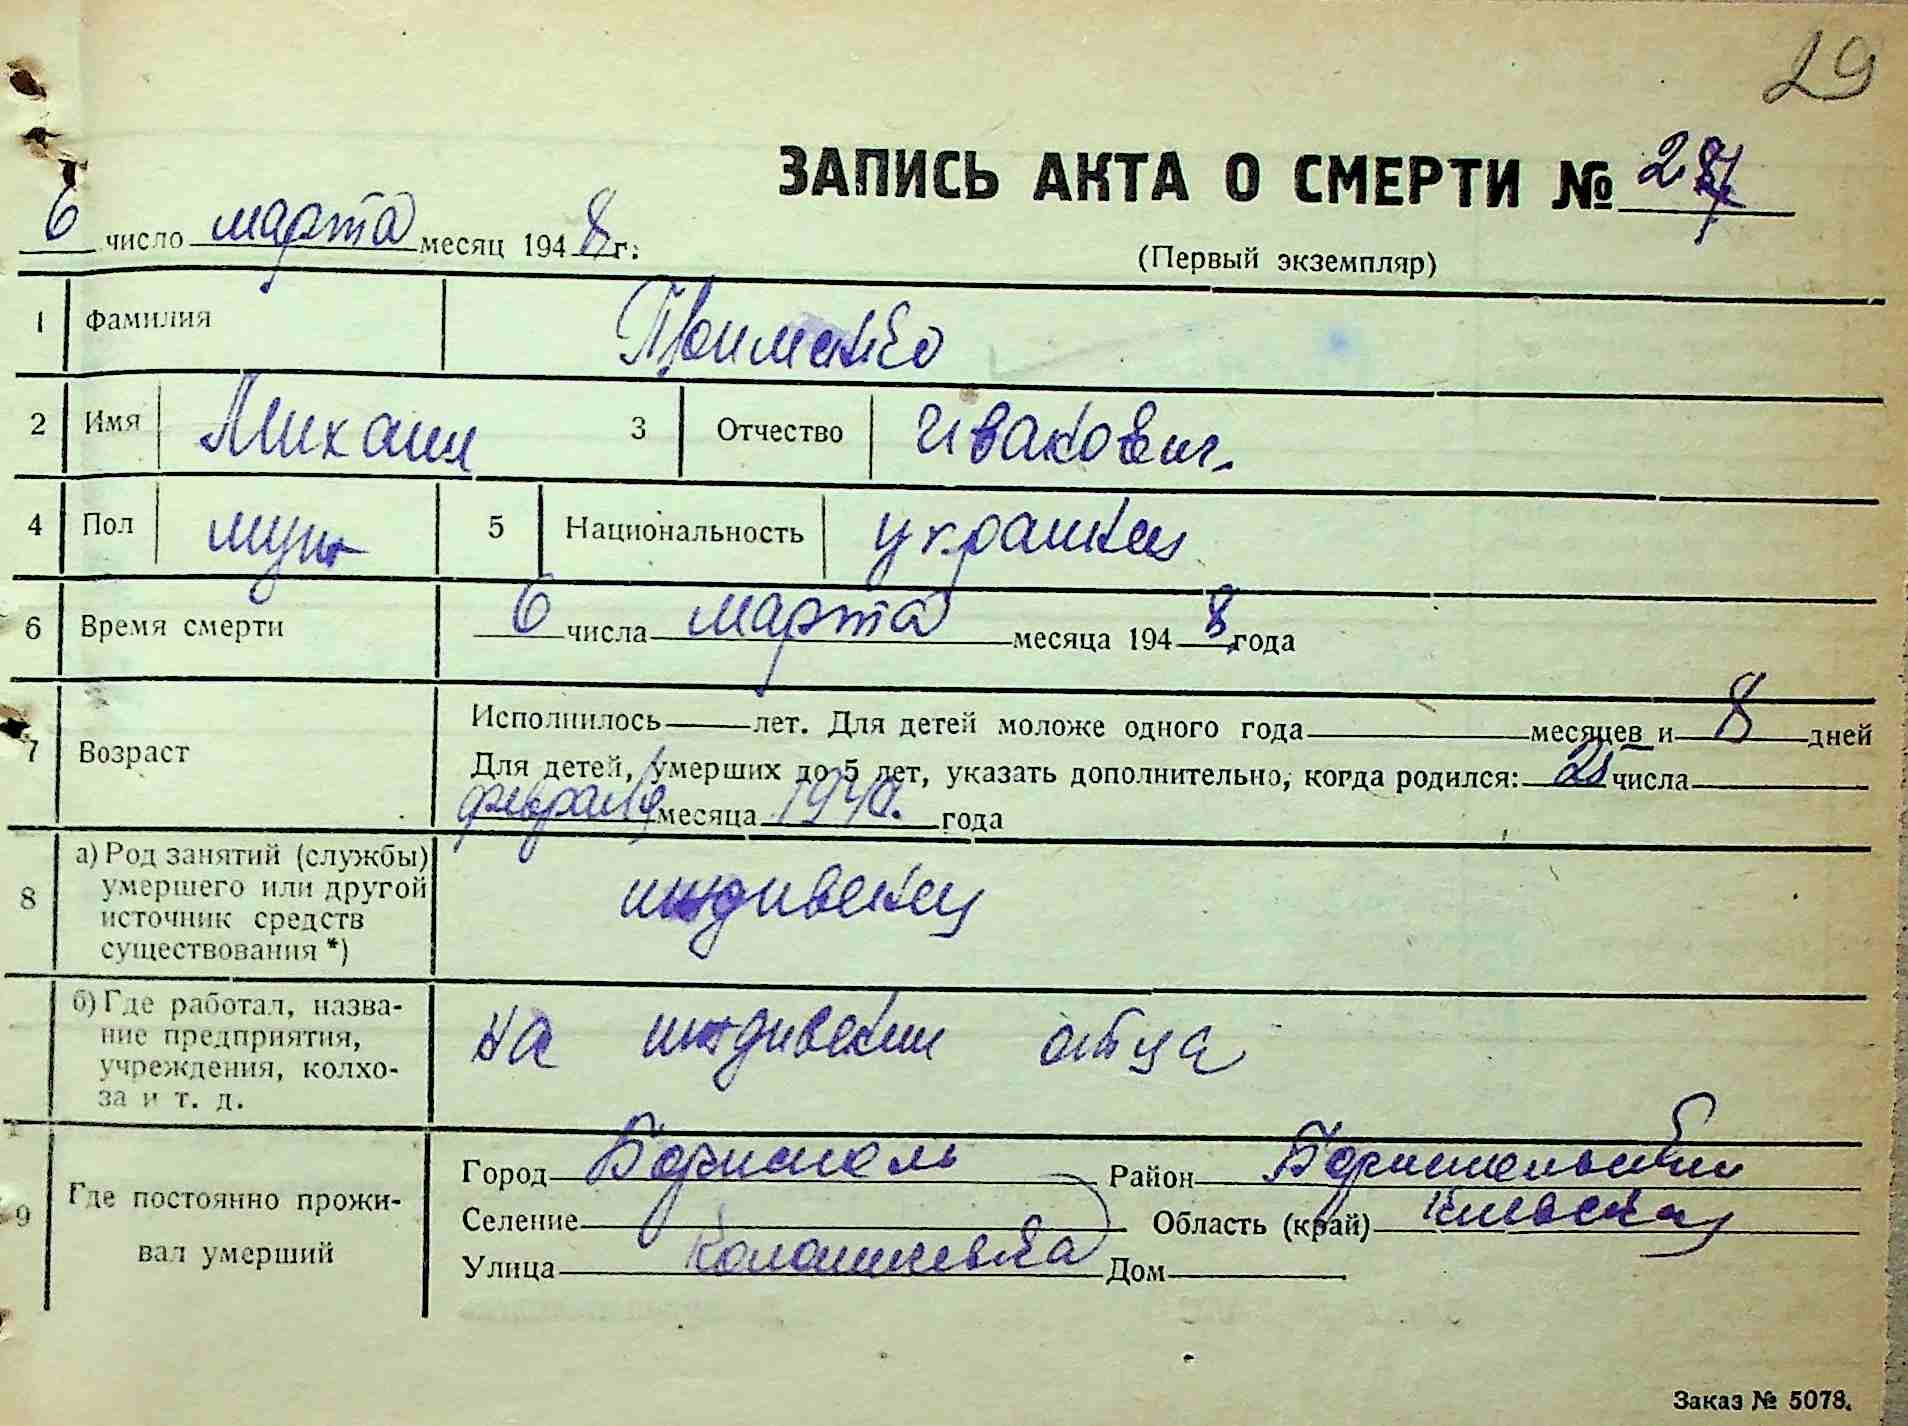 29
ЗАПИСЬ АКТА О СМЕРТИ № 27
6 число марта месяц 1948 г.
(Первый экземпляр)
1 Фамилия Приманко
2 Имя Михаил 3 Отчество Ивакович.
4 Пол муж 5 Национальность украинец
6 Время смерти 6 числа марта месяца 1948 года
7 Возраст Исполнилось лет. Для детей моложе одного года месяцев и 8 дней
Для детей, умерших до 5 лет, указать дополнительно, когда родился: числа
февраля месяца года
8 а) Род занятий (службы)
умершего или другой
источник средств
существования *)
иждивенец
б) Где работал, назва-
ние предприятия,
учреждения, колхо-
за и т. д.
на иждивении отца
9 Где постоянно прожи-
вал умерший
Город Борисполь Район Бориспольский
Селение Область (край) Киевская
Улица Дом
Заказ № 5078.